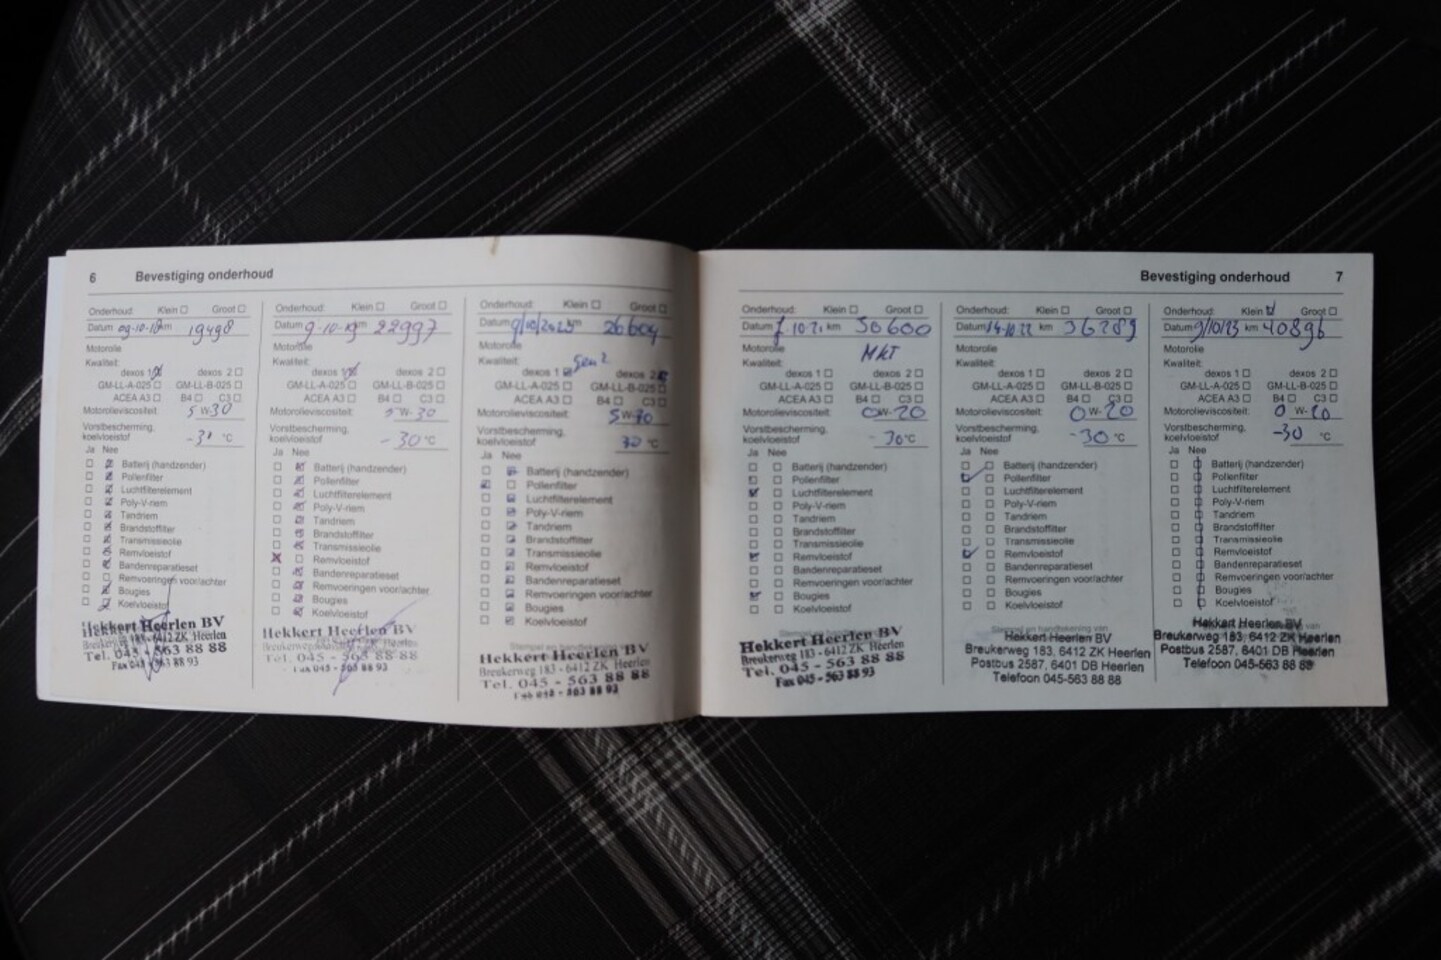 6 Bevestiging onderhoud
Onderhoud: Klein Groot
Datum 09-10-18 km 19498
Motorolie
Kwaliteit:
dexos 1 dexos 2
GM-LL-A-025 GM-LL-B-025
ACEA A3 B4 C3
Motorolieviscositeit: 5 W-30
Vorstbescherming,
koelvloeistof -31 °C
Ja Nee
Batterij (handzender)
Pollenfilter
Luchtfilterelement
Poly-V-riem
Tandriem
Brandstoffilter
Transmissieolie
Remvloeistof
Bandenreparatieset
Remvoeringen voor/achter
Bougies
Koelvloeistof
Hekkert Heerlen BV
Breukerweg 183 - 6412 ZK Heerlen
Tel. 045 - 563 88 88
Fax 045 - 563 88 93
Onderhoud: Klein Groot
Datum 9-10-19 km 22997
Motorolie
Kwaliteit:
dexos 1 dexos 2
GM-LL-A-025 GM-LL-B-025
ACEA A3 B4 C3
Motorolieviscositeit: 5 W-30
Vorstbescherming,
koelvloeistof -30 °C
Ja Nee
Batterij (handzender)
Pollenfilter
Luchtfilterelement
Poly-V-riem
Tandriem
Brandstoffilter
Transmissieolie
Remvloeistof
Bandenreparatieset
Remvoeringen voor/achter
Bougies
Koelvloeistof
Hekkert Heerlen BV
Tel. 045 - 563 88 88
Fax 045 - 563 88 93
Onderhoud: Klein Groot
Datum km 26604
Motorolie
Kwaliteit: gen 2
dexos 1 dexos 2
GM-LL-A-025 GM-LL-B-025
ACEA A3 B4 C3
Motorolieviscositeit: 5 W-30
Vorstbescherming,
koelvloeistof 30 °C
Ja Nee
Batterij (handzender)
Pollenfilter
Luchtfilterelement
Poly-V-riem
Tandriem
Brandstoffilter
Transmissieolie
Remvloeistof
Bandenreparatieset
Remvoeringen voor/achter
Bougies
Koelvloeistof
Hekkert Heerlen BV
Breukerweg 183 - 6412 ZK Heerlen
Tel. 045 - 563 88 88
Fax 045 - 563 88 93
Bevestiging onderhoud 7
Onderhoud: Klein Groot
Datum 7-10-21 km 30600
Motorolie MKT
Kwaliteit:
dexos 1 dexos 2
GM-LL-A-025 GM-LL-B-025
ACEA A3 B4 C3
Motorolieviscositeit: 0 W-20
Vorstbescherming,
koelvloeistof -30 °C
Ja Nee
Batterij (handzender)
Pollenfilter
Luchtfilterelement
Poly-V-riem
Tandriem
Brandstoffilter
Transmissieolie
Remvloeistof
Bandenreparatieset
Remvoeringen voor/achter
Bougies
Koelvloeistof
Hekkert Heerlen BV
Breukerweg 183 - 6412 ZK Heerlen
Tel. 045 - 563 88 88
Fax 045 - 563 88 93
Onderhoud: Klein Groot
Datum 14-10-22 km 36289
Motorolie
Kwaliteit:
dexos 1 dexos 2
GM-LL-A-025 GM-LL-B-025
ACEA A3 B4 C3
Motorolieviscositeit: 0 W-20
Vorstbescherming,
koelvloeistof -30 °C
Ja Nee
Batterij (handzender)
Pollenfilter
Luchtfilterelement
Poly-V-riem
Tandriem
Brandstoffilter
Transmissieolie
Remvloeistof
Bandenreparatieset
Remvoeringen voor/achter
Bougies
Koelvloeistof
Stempel en handtekening van
Hekkert Heerlen BV
Breukerweg 183, 6412 ZK Heerlen
Postbus 2587, 6401 DB Heerlen
Telefoon 045-563 88 88
Onderhoud: Klein Groot
Datum 9/10/23 km 40896
Motorolie
Kwaliteit:
dexos 1 dexos 2
GM-LL-A-025 GM-LL-B-025
ACEA A3 B4 C3
Motorolieviscositeit: 0 W-20
Vorstbescherming,
koelvloeistof -30 °C
Ja Nee
Batterij (handzender)
Pollenfilter
Luchtfilterelement
Poly-V-riem
Tandriem
Brandstoffilter
Transmissieolie
Remvloeistof
Bandenreparatieset
Remvoeringen voor/achter
Bougies
Koelvloeistof
Hekkert Heerlen BV
Breukerweg 183, 6412 ZK Heerlen
Postbus 2587, 6401 DB Heerlen
Telefoon 045-563 88 88